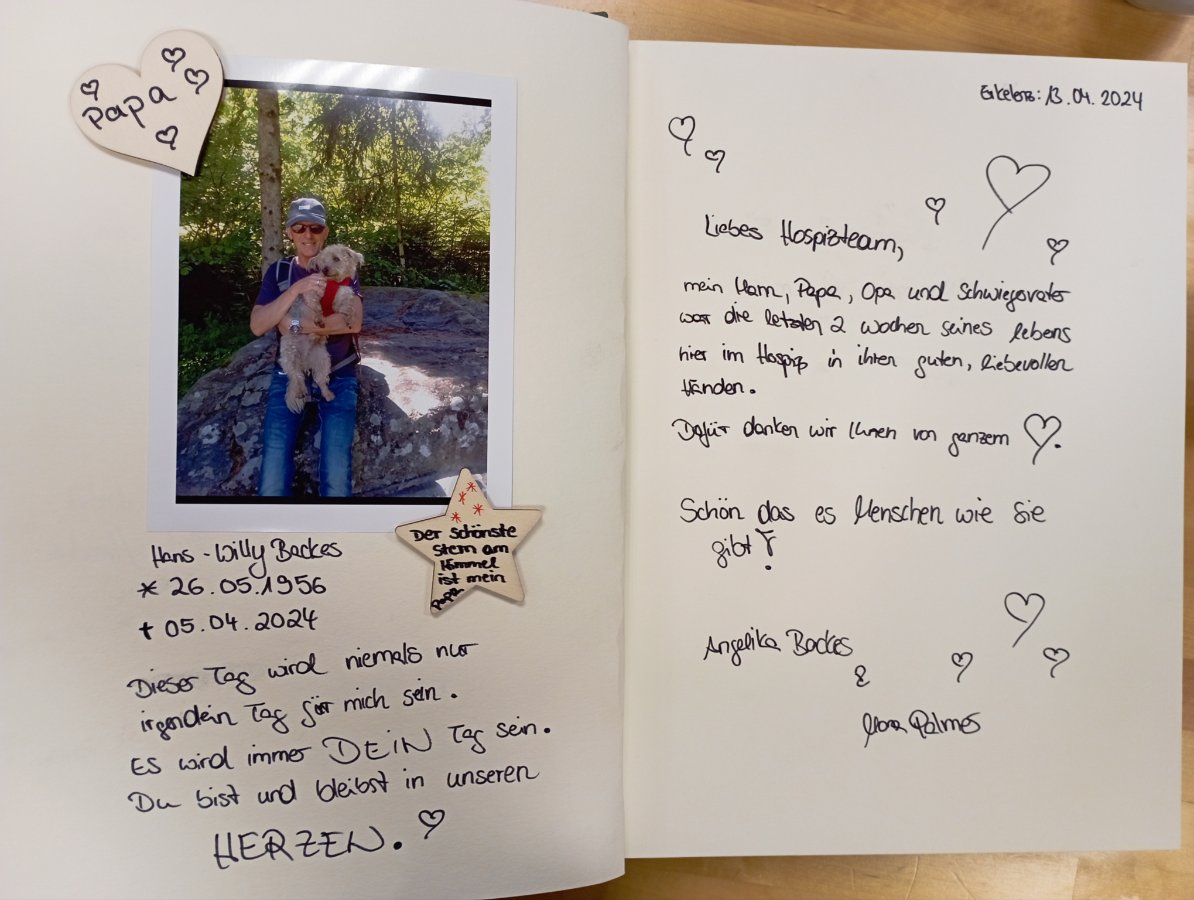 Papa
Hans-Willy Backes
* 26.05.1956
† 05.04.2024
Der schönste
Stern am
Himmel
ist mein
Papa
Dieser Tag wird niemals nur
irgendein Tag für mich sein.
Es wird immer DEIN Tag sein.
Du bist und bleibst in unseren
HERZEN.
Erkelenz: 13.04.2024
Liebes Hospizteam,
mein Mann, Papa, Opa und Schwiegervater
war die letzten 2 Wochen seines lebens
hier im Hospiz in ihren guten, liebevollen
Händen.
Dafür danken wir Ihnen von ganzem ♡.
Schön das es Menschen wie Sie
gibt!
Angelika Backes
&
Palmes